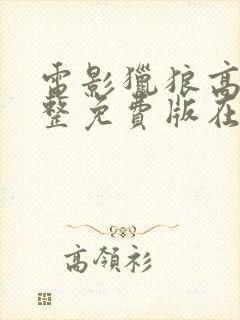 電影獵狼高
整免費版在
高領衫